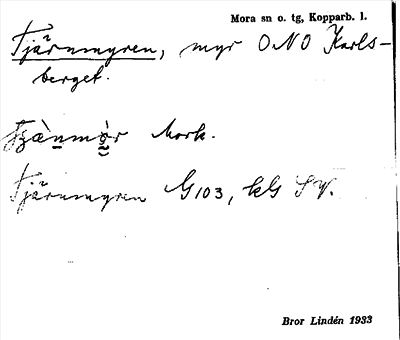 Mora sn o. tg, Kopparb. l.
Tjärnmyren, myr ONO Karls-
berget.
Mork.
Tjärnmyren G103, kG SV.
Bror Lindén 1933